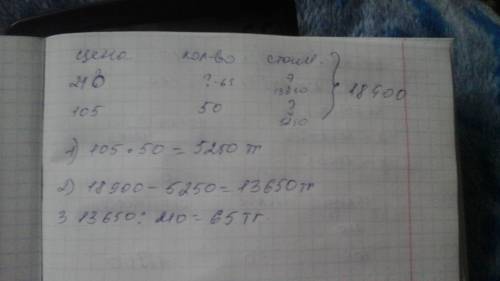 цена кол-во стоим.
210 ?-65 ? 13650
105 50 ? 5250 } 18900
1) 105 · 50 = 5250 тг
2) 18900 - 5250 = 13650 тг
3 13650 : 210 = 65 тг